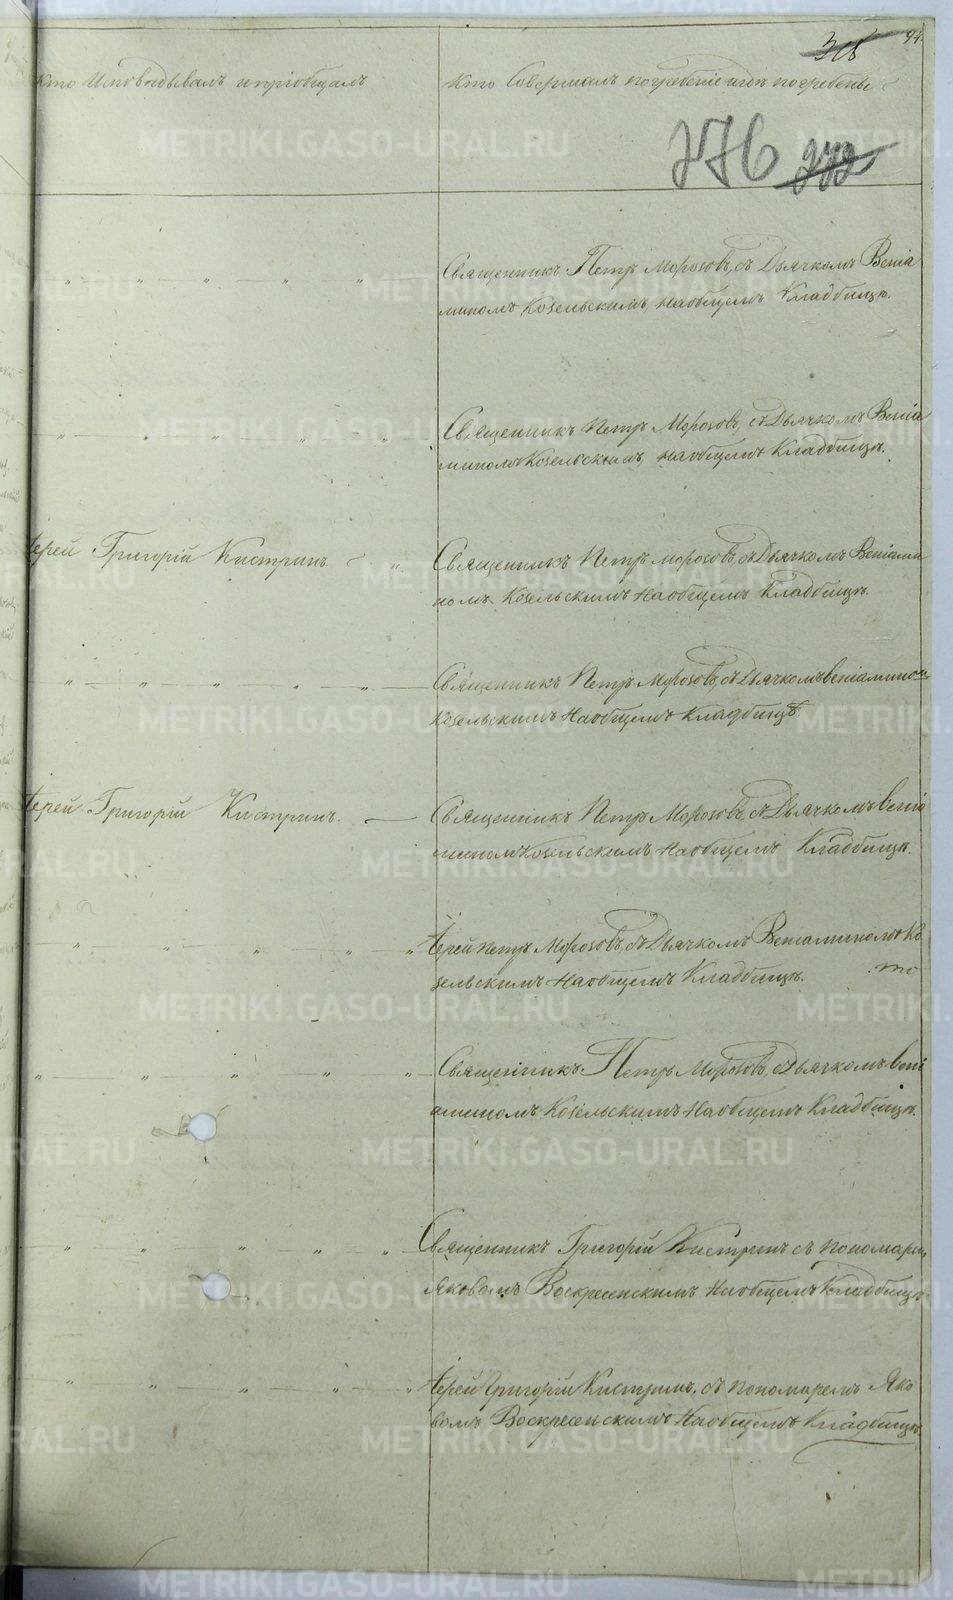 94.
Кто Исповѣдывалъ и пріобщалъ
Кто Совершалъ погребеніе и гдѣ погребены
276 272
Священникъ Петръ Морозовъ, съ Дьячкомъ Веніа
миномъ Козельскимъ, на общемъ Кладбищѣ.
Священникъ Петръ Морозовъ, съ Дьячкомъ Веніа
миномъ Козельскимъ, на общемъ Кладбищѣ.
Іерей Григорій Кистринъ
Священникъ Петръ Морозовъ, съ Дьячкомъ Веніами
номъ Козельскимъ на общемъ Кладбищѣ.
Священникъ Петръ Морозовъ, съ Дьячкомъ Веніамином
Козельскимъ на общемъ Кладбищѣ.
Іерей Григорій Кистринъ.
Священникъ Петръ Морозовъ, съ Дьячкомъ Веніа
миномъ Козельскимъ на общемъ Кладбищѣ.
Іерей Петръ Морозовъ, съ Дьячкомъ Веніаминомъ Ко
зельскимъ на общемъ Кладбищѣ.
Священникъ Петръ Морозовъ, съ Дьячкомъ Вені
аминомъ Козельскимъ на общемъ Кладбищѣ.
Священникъ Григорій Кистринъ съ пономарем
Яковомъ Воскресенскимъ на общемъ Кладбищѣ.
Іерей Григорій Кистринъ, съ пономаремъ Яко
вомъ Воскресенскимъ на общемъ Кладбищѣ.
METRIKI.GASO-URAL.RU